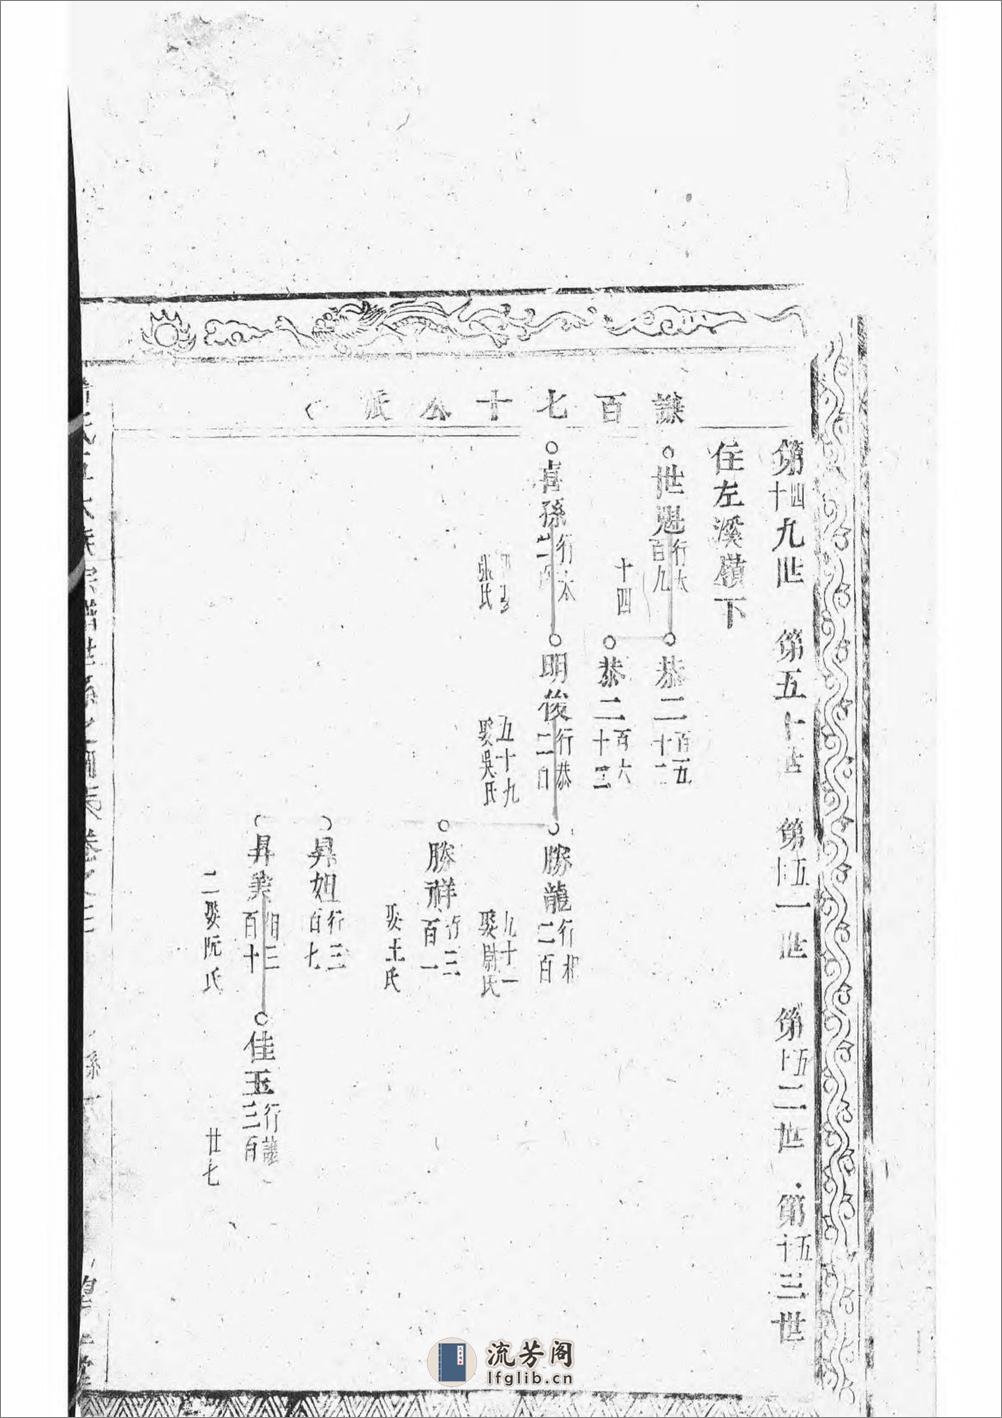 謙百七十公派
第四十九世 第五十世 第五十一世 第五十二世 第五十三世
住左溪嶺下
世勉行太百九十四
恭二百五十二
恭二百六十三
喜孫行太
張氏
明俊行恭二百五十九
娶吳氏
勝龍行相二百九十一
娶尉氏
勝祥行三百一
娶王氏
昇妲行三百七
昇美相三百十
二娶阮氏
佳玉行謙三百廿七
宗譜世系之圖
卷之
系一
流芳阁
lfglib.cn